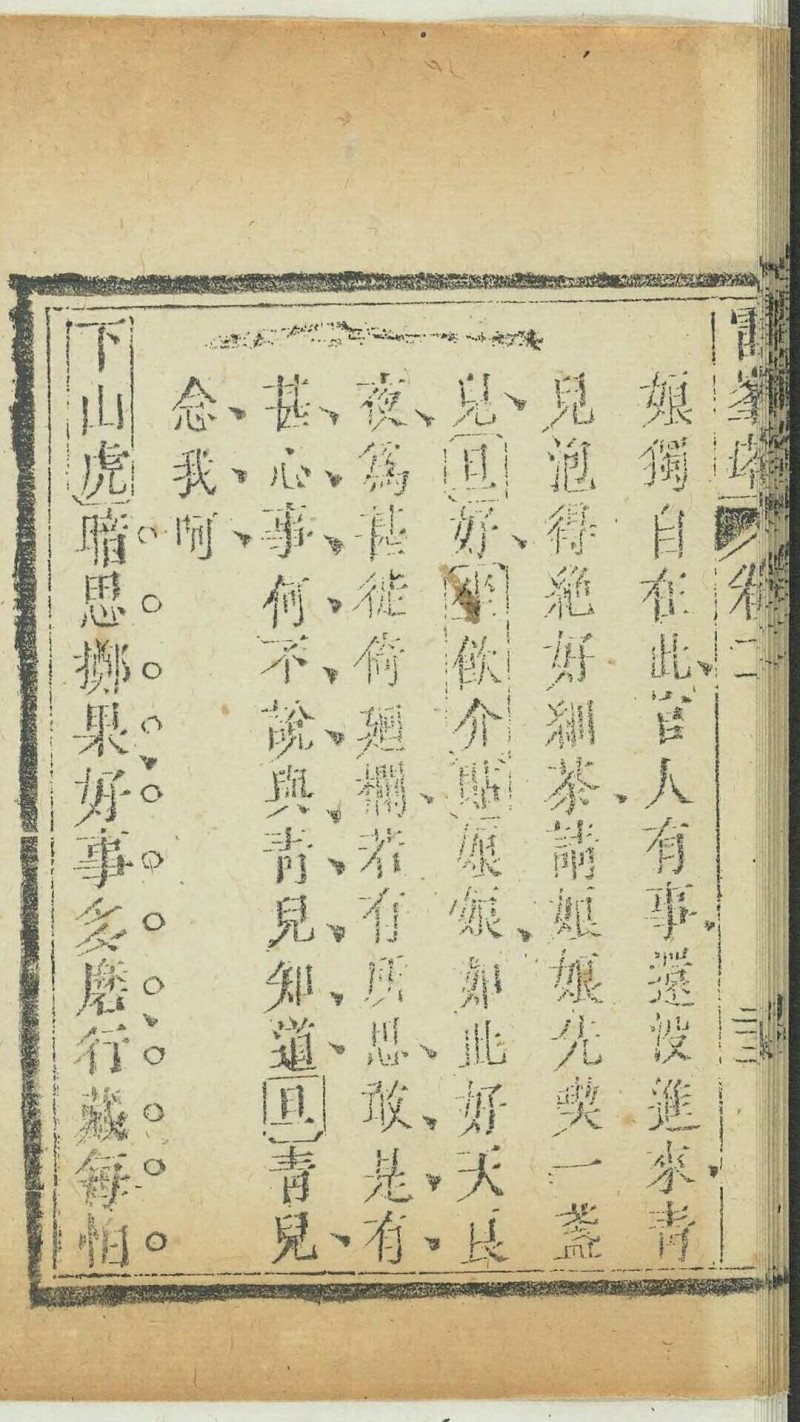 雷峯塔 卷二 三
娘獨自在此官人有事還沒進來青
兒泡得絶好細茶請娘娘先喫一盞
兒旦好坐飲介貼娘娘如此好天良
夜爲甚徙倚廻欄若有所思敢是有
甚心事何不說與青兒知道旦青兒
念我呵
下山虎暗思擲果好事多磨行藏每怕